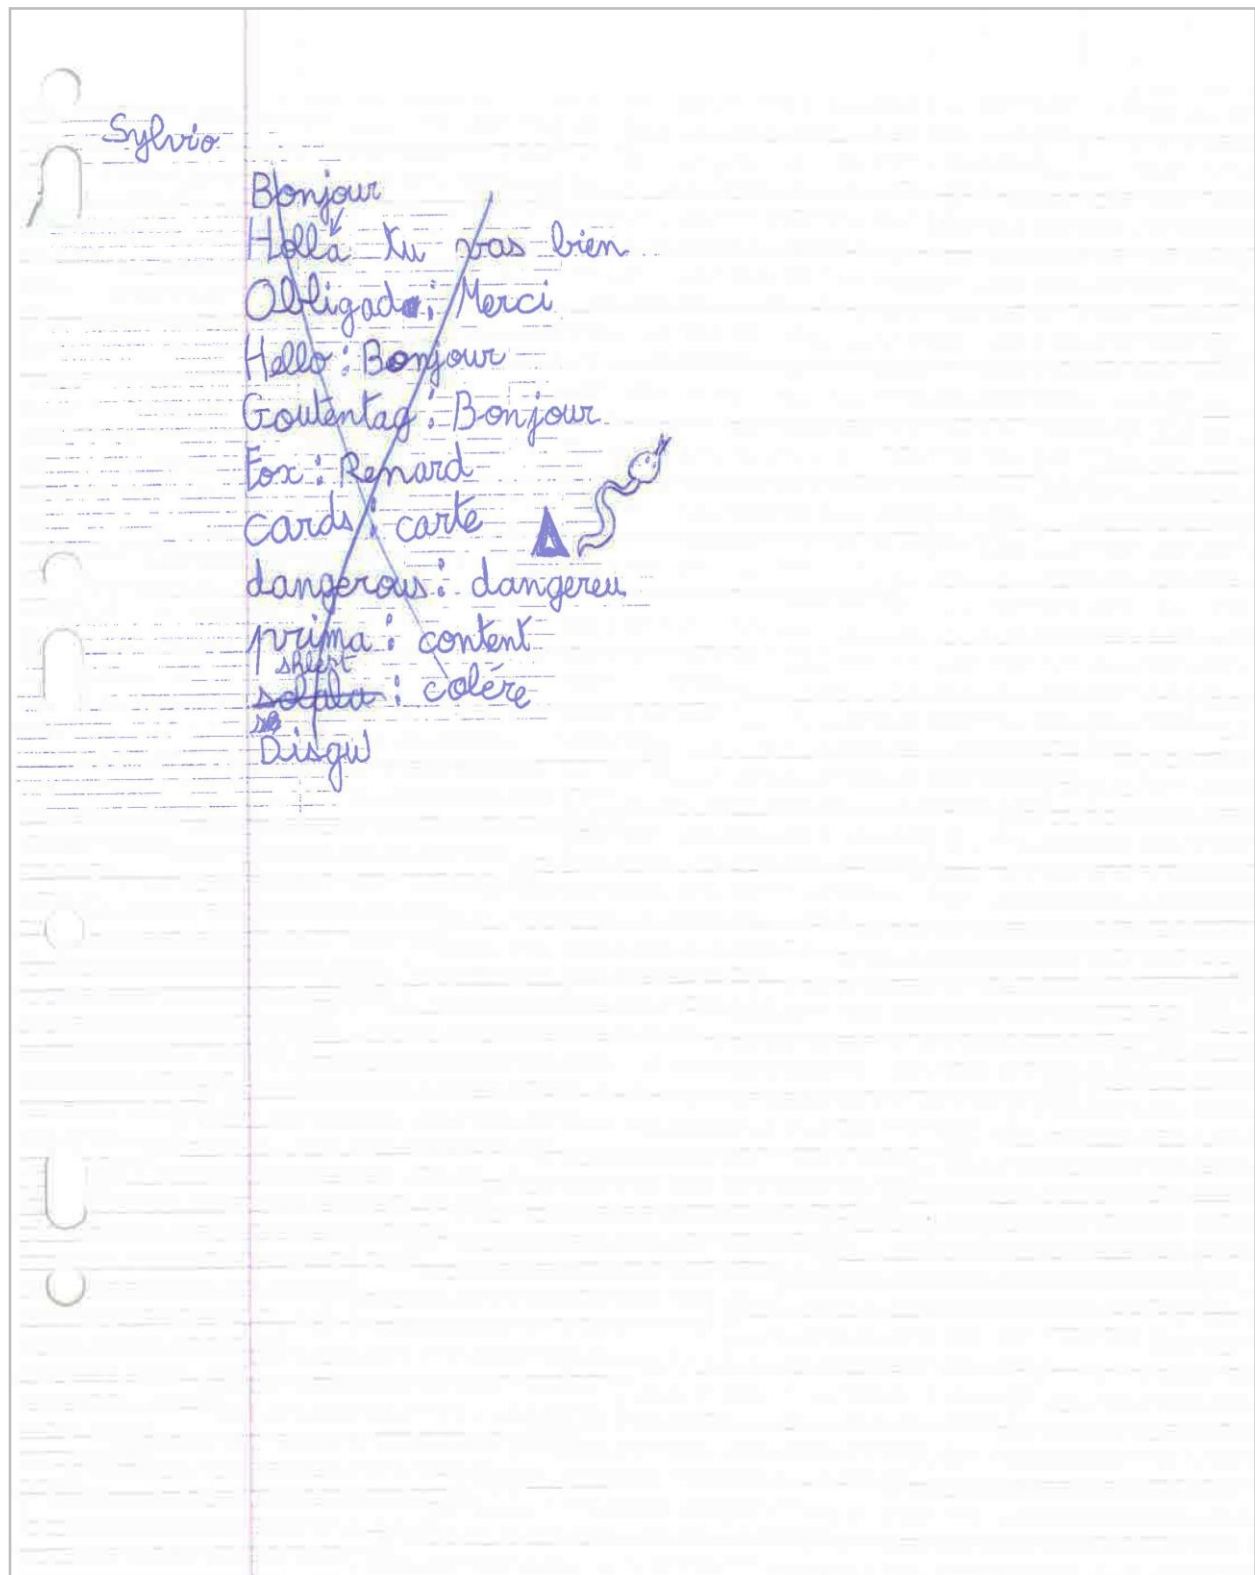 Sylvio
Bonjour
Holla tu vas bien
Obligado : Merci
Hello : Bonjour
Goutentag : Bonjour
Fox : Renard
cards : carte
dangerous : dangereu
prima : content
shlert
: colére
Disgu